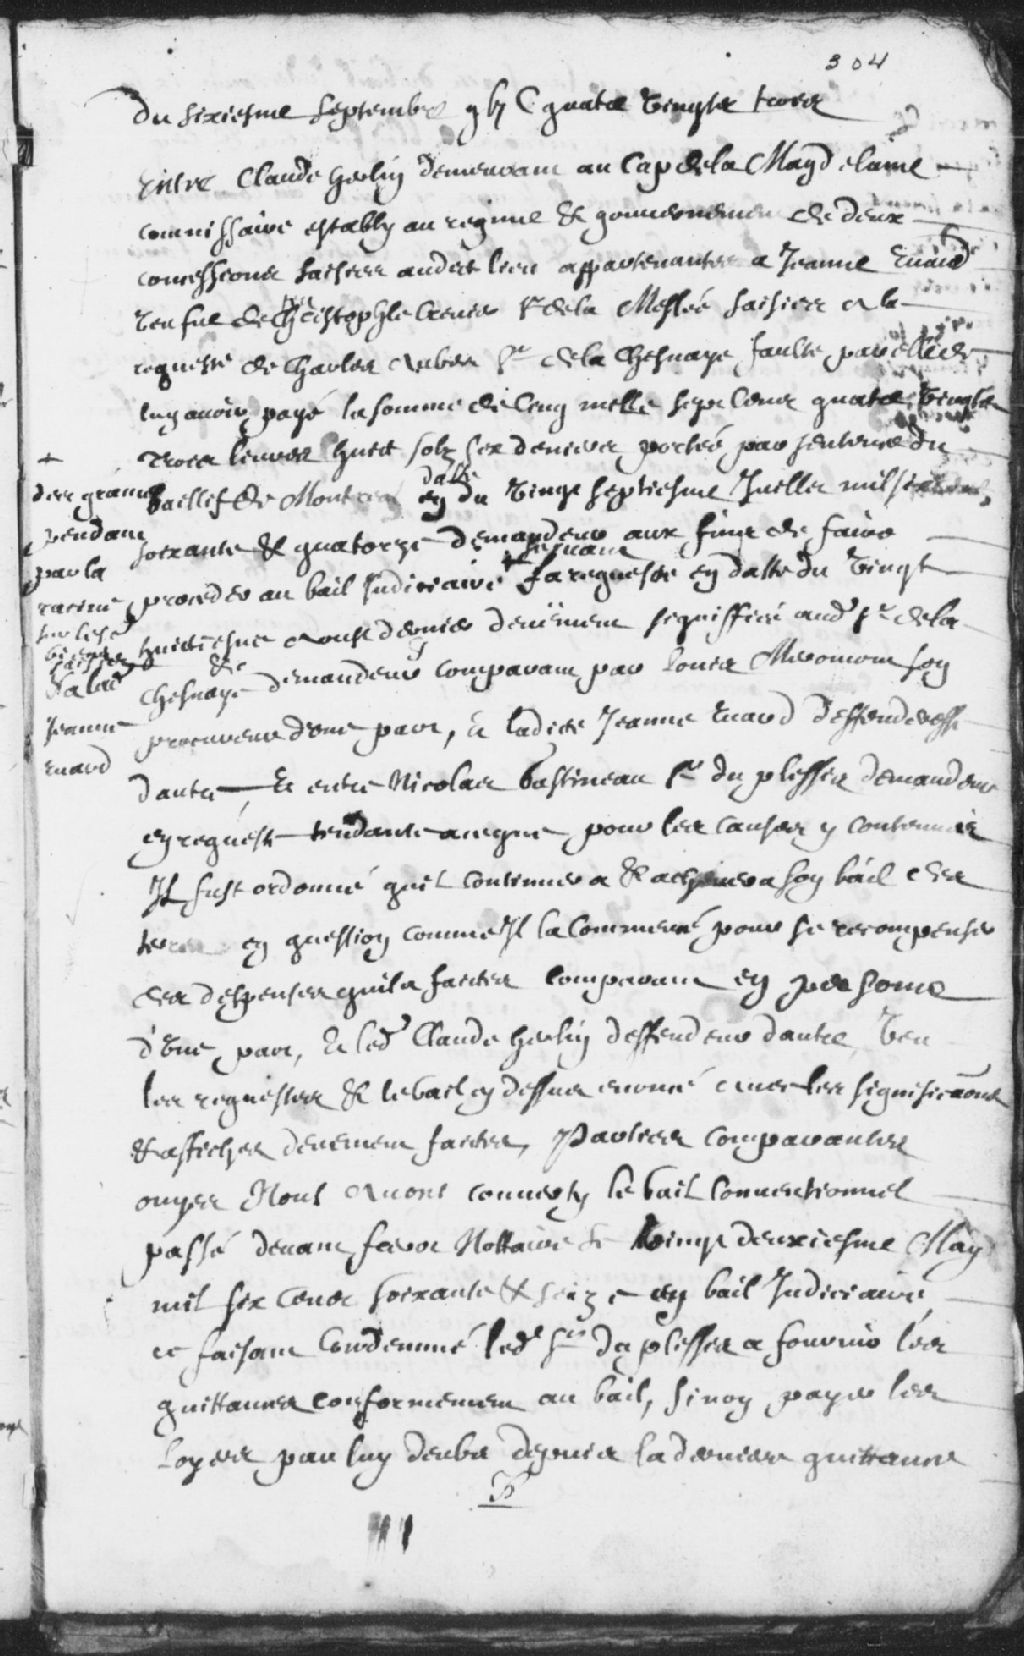 304
du sixiesme septembre gbjC quatre vingts trois
Entre Claude herlin demeurant au Cap de la Magdelaine
commissaire estably au regime & gouvernement de deux
concessions saisies audit lieu appartenantes a Jeanne Enard
venfue de Christophle Crevier Sr de la Meslée saisies a la
requeste de Charles Aubert Sr de la Chesnaye faulte par elle de
luy avoir payé la somme de Cinq mille sept Cents quatre vingts
trois livres huict solz six deniers portés par sentence du
baillif de Montreal en datte du vingt septiesme Juillet mil six cens
soixante & quatorze demandeur aux fins de faire
proceder au bail Judiciaire + suivant sa requeste en datte du vingt
huictiesme Aoust dernier deüement signiffiée aud Sr de la
Chesnaye & demandeur comparant par Louis
procureur d'une part, & ladite Jeanne Enard deffenderesse
d'autre, Et entre Nicolas Gastineau Sr du plessis demandeur
en requeste tendante a ce que pour les causes y contenues
Il fust ordonné quil continuera & achevera son bail des
terres en question comme Il la Commencé pour se recompenser
des despenses quil a faictes comparant en personne
d'une part, & led Claude herlin deffendeur d'autre, Veu
les requestes & le bail cy dessus enoncé avec les significaons
& affiches deuement faictes, Parties comparantes
ouyes Nous Avons converty le bail Conventionnel
passé devant Nottaire le vingt deuxiesme May
mil six Cens soixante & seize en bail Judiciaire,
ce faisant Condemné led Sr du plessis a fournir les
quittances conformement au bail, sinon payer les
loyers par luy deubs depuis la derniere quittance
+
des grains
pendans
par la
racine
sur les
biens
saisis
Jeanne
Enard